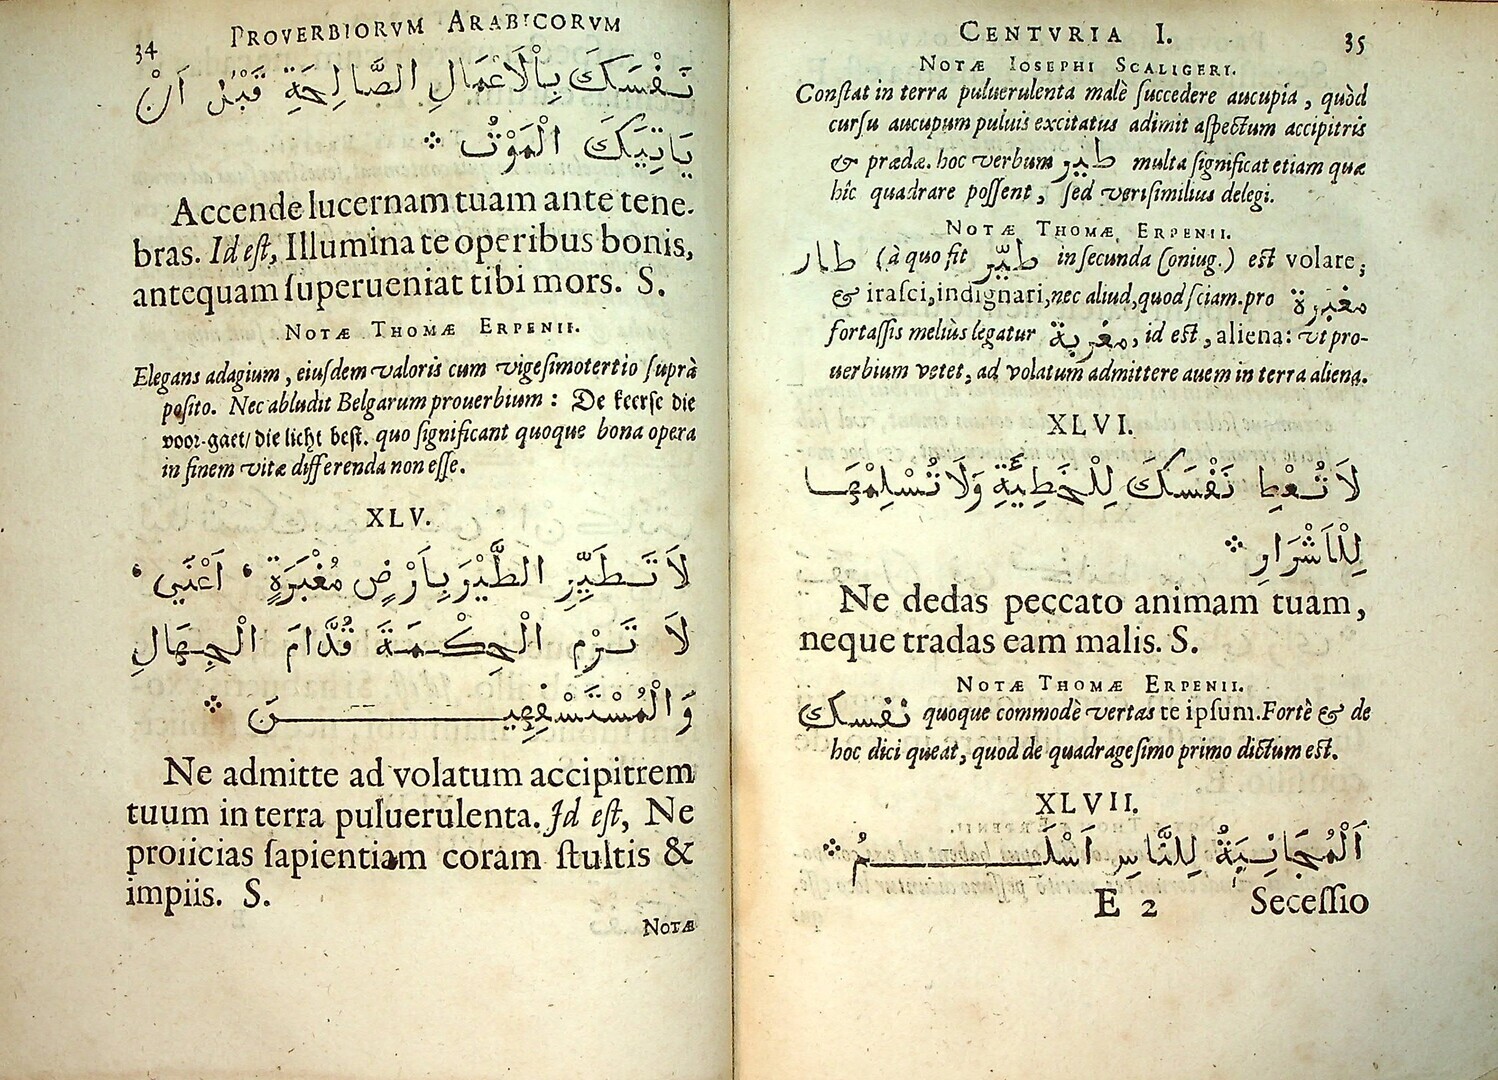 34 PROVERBIORVM ARABICORVM
نَفْسَكَ بِٱلْأَعْمَالِ الصَّالِحَةِ قَبْلَ اَنْ
يَاتِيَكَ الْمَوْتُ
Accende lucernam tuam ante tene-
bras. Id eſt, Illumina te operibus bonis,
antequam ſuperueniat tibi mors. S.
NOTÆ THOMÆ ERPENII.
Elegans adagium, eiuſdem valoris cum vigeſimotertio ſuprà
poſito. Nec abludit Belgarum prouerbium: De keerſe die
voor-gaet/ die licht beſt. quo ſignificant quoque bona opera
in finem vitæ differenda non eſſe.
XLV.
لَا تَطَيِّرِ الطَّيْرَ بِاَرْضٍ مُغْبَرَةٍ ، اَعْنَي ،
لَا تَرْمِ الْحِكْمَةَ قُدَّامَ الْجِهَالِ
وَالْمُسْتَسْفِهِينَ
Ne admitte ad volatum accipitrem
tuum in terra puluerulenta. Id eſt, Ne
proiicias ſapientiam coram ſtultis &
impiis. S.
NOTÆ
CENTVRIA I. 35
NOTÆ IOSEPHI SCALIGERI.
Conſtat in terra puluerulenta malè ſuccedere aucupia, quòd
curſu aucupum puluis excitatus adimit aſpectum accipitris
& prædæ. hoc verbum طير multa ſignificat etiam quæ
hîc quadrare poſſent, ſed veriſimilius delegi.
NOTÆ THOMÆ ERPENII.
طار (à quo fit طيّر in ſecunda Coniug.) eſt volare;
& iraſci, indignari, nec aliud, quod ſciam. pro مغبرة
fortaſſis meliùs legatur مغربة, id eſt, aliena: vt pro-
uerbium vetet, ad volatum admittere auem in terra aliena.
XLVI.
لَا تُعْطِ نَفْسَكَ لِلْخَطِيَّةِ وَلَا تُسْلِمْهَا
لِلْاَشْرَارِ
Ne dedas peccato animam tuam,
neque tradas eam malis. S.
NOTÆ THOMÆ ERPENII.
نفسك quoque commodè vertas te ipſum. Fortè & de
hoc dici queat, quod de quadrageſimo primo dictum eſt.
XLVII.
اَلْمُجَانِبَةُ لِلنَّاسِ اَسْلَمُ
E 2 Seceſſio